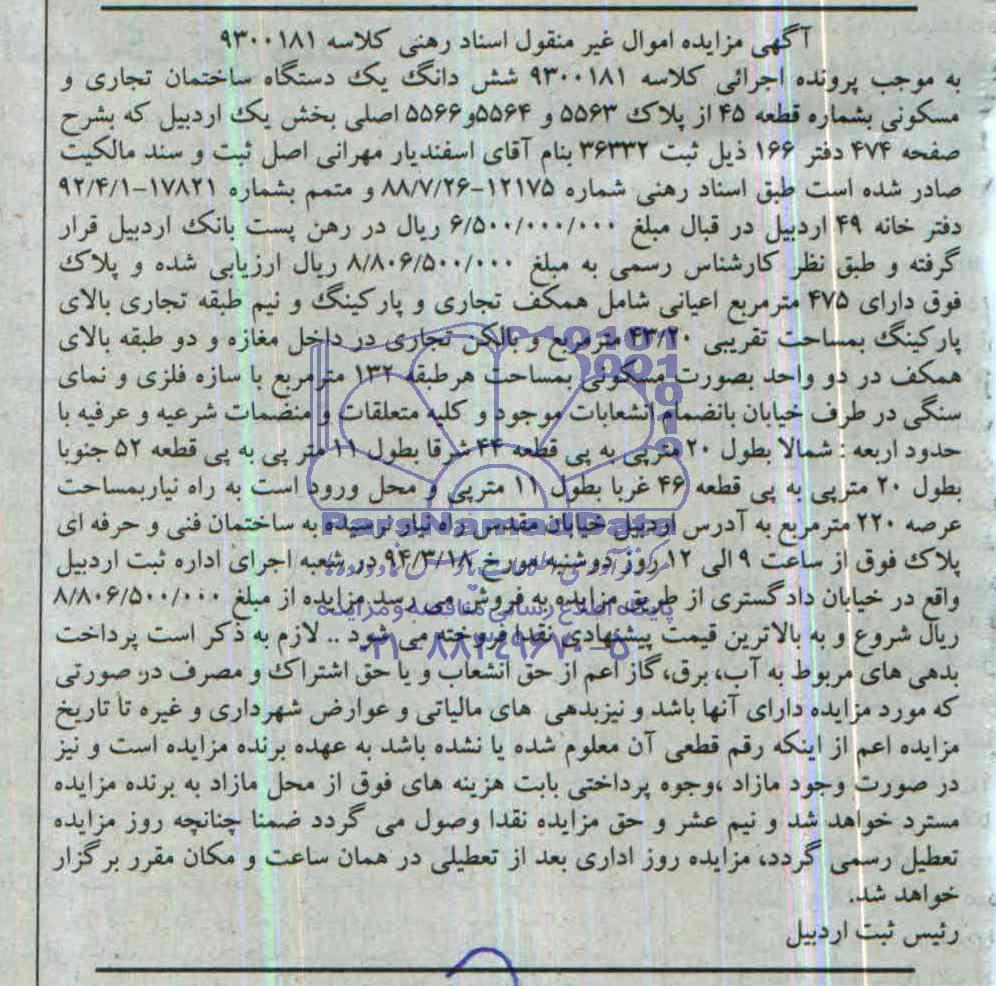 آگهی مزایده اموال غیر منقول اسناد رهنی کلاسه ۹۳۰۰۱۸۱
به موجب پرونده اجرائی کلاسه ۹۳۰۰۱۸۱ شش دانگ یک دستگاه ساختمان تجاری و
مسکونی بشماره قطعه ۴۵ از پلاک ۵۵۶۳ و ۵۵۶۴و۵۵۶۶ اصلی بخش یک اردبیل که بشرح
صفحه ۴۷۴ دفتر ۱۶۶ ذیل ثبت ۳۶۳۳۲ بنام آقای اسفندیار مهرانی اصل ثبت و سند مالکیت
صادر شده است طبق اسناد رهنی شماره ۱۲۱۷۵-۸۸/۷/۲۶ و متمم بشماره ۱۷۸۲۱-۹۲/۴/۱
دفتر خانه ۴۹ اردبیل در قبال مبلغ ۶/۵۰۰/۰۰۰/۰۰۰ ریال در رهن پست بانک اردبیل قرار
گرفته و طبق نظر کارشناس رسمی به مبلغ ۸/۸۰۶/۵۰۰/۰۰۰ ریال ارزیابی شده و پلاک
فوق دارای ۴۷۵ مترمربع اعیانی شامل همکف تجاری و پارکینگ و نیم طبقه تجاری بالای
پارکینگ بمساحت تقریبی ۴۳/۲۰ مترمربع و بالکن تجاری در داخل مغازه و دو طبقه بالای
همکف در دو واحد بصورت مسکونی بمساحت هرطبقه ۱۳۲ مترمربع با سازه فلزی و نمای
سنگی در طرف خیابان بانضمام انشعابات موجود و کلیه متعلقات و منضمات شرعیه و عرفیه با
حدود اربعه : شمالا بطول ۲۰ مترپی به پی قطعه ۴۴ شرقا بطول ۱۱ متر پی به پی قطعه ۵۲ جنوبا
بطول ۲۰ مترپی به پی قطعه ۴۶ غربا بطول ۱۱ مترپی و محل ورود است به راه نیاربمساحت
عرصه ۲۲۰ مترمربع به آدرس اردبیل خیابان مقدس راه نیار نرسیده به ساختمان فنی و حرفه ای
پلاک فوق از ساعت ۹ الی ۱۲ روز دوشنبه مورخ ۹۴/۳/۱۸ در شعبه اجرای اداره ثبت اردبیل
واقع در خیابان دادگستری از طریق مزایده به فروش می رسد مزایده از مبلغ ۸/۸۰۶/۵۰۰/۰۰۰
ریال شروع و به بالاترین قیمت پیشنهادی نقدا فروخته می شود .. لازم به ذکر است پرداخت
بدهی های مربوط به آب، برق،گاز اعم از حق انشعاب و یا حق اشتراک و مصرف در صورتی
که مورد مزایده دارای آنها باشد و نیزبدهی های مالیاتی و عوارض شهرداری و غیره تا تاریخ
مزایده اعم از اینکه رقم قطعی آن معلوم شده یا نشده باشد به عهده برنده مزایده است و نیز
در صورت وجود مازاد ،وجوه پرداختی بابت هزینه های فوق از محل مازاد به برنده مزایده
مسترد خواهد شد و نیم عشر و حق مزایده نقدا وصول می گردد ضمنا چنانچه روز مزایده
تعطیل رسمی گردد، مزایده روز اداری بعد از تعطیلی در همان ساعت و مکان مقرر برگزار
خواهد شد.
رئیس ثبت اردبیل
ParsNamadData
پایگاه اطلاع رسانی مناقصه و مزایده
۰۲۱-۸۸۳۴۹۶۷۰-۵